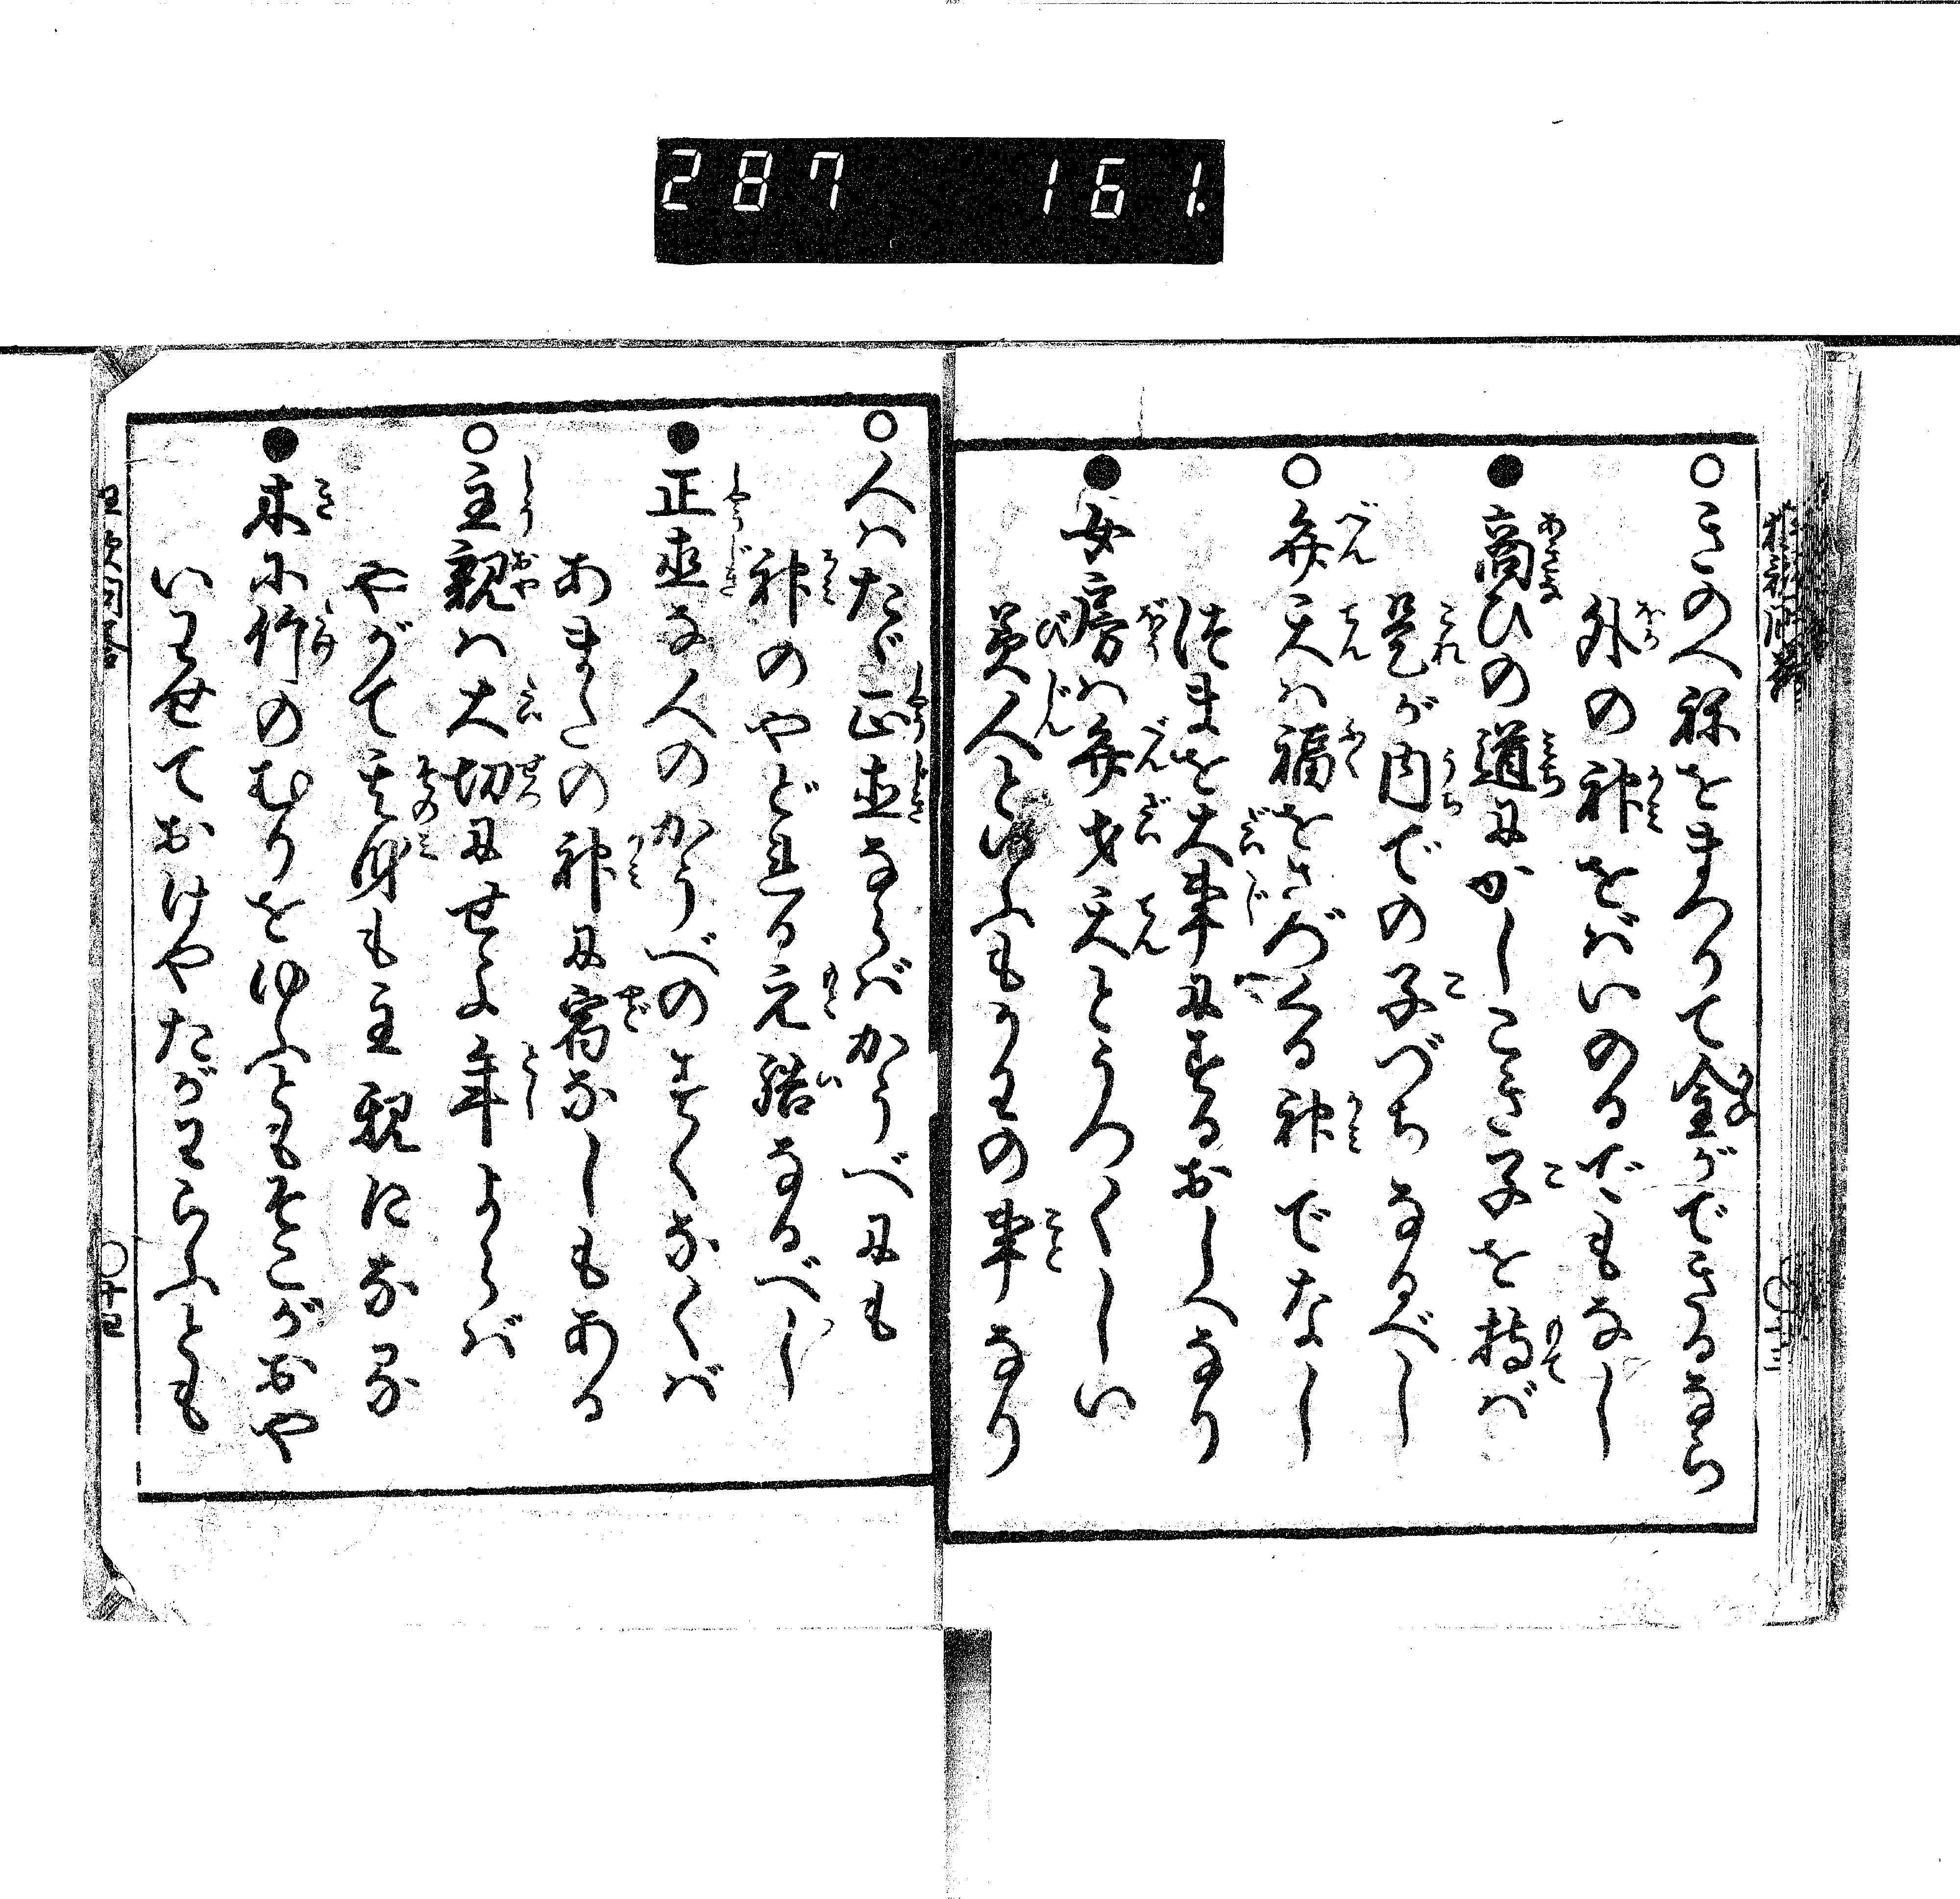 287 161.
○きのへ祢をまつりて金ができるなら
外の神をばいのるでもなし
●商ひの道にかしこき子を持ば
是が内での子づちなるべし
○弁天は福をさづくる神でなし
つまを大事にするおしへなり
●女房は弁才天とうつくしい
美人とゆふもうわの事なり
○人はたゞ正直ならばかうべにも
神のやどれる元結なるべし
●正直な人のかうべのすくなくば
あまたの神に宿なしもある
○主親は大切にせよ年よらば
やがて其身も主親になる
●木に竹のむりをゆふともそこがおや
いわせておけやたがわらふとも